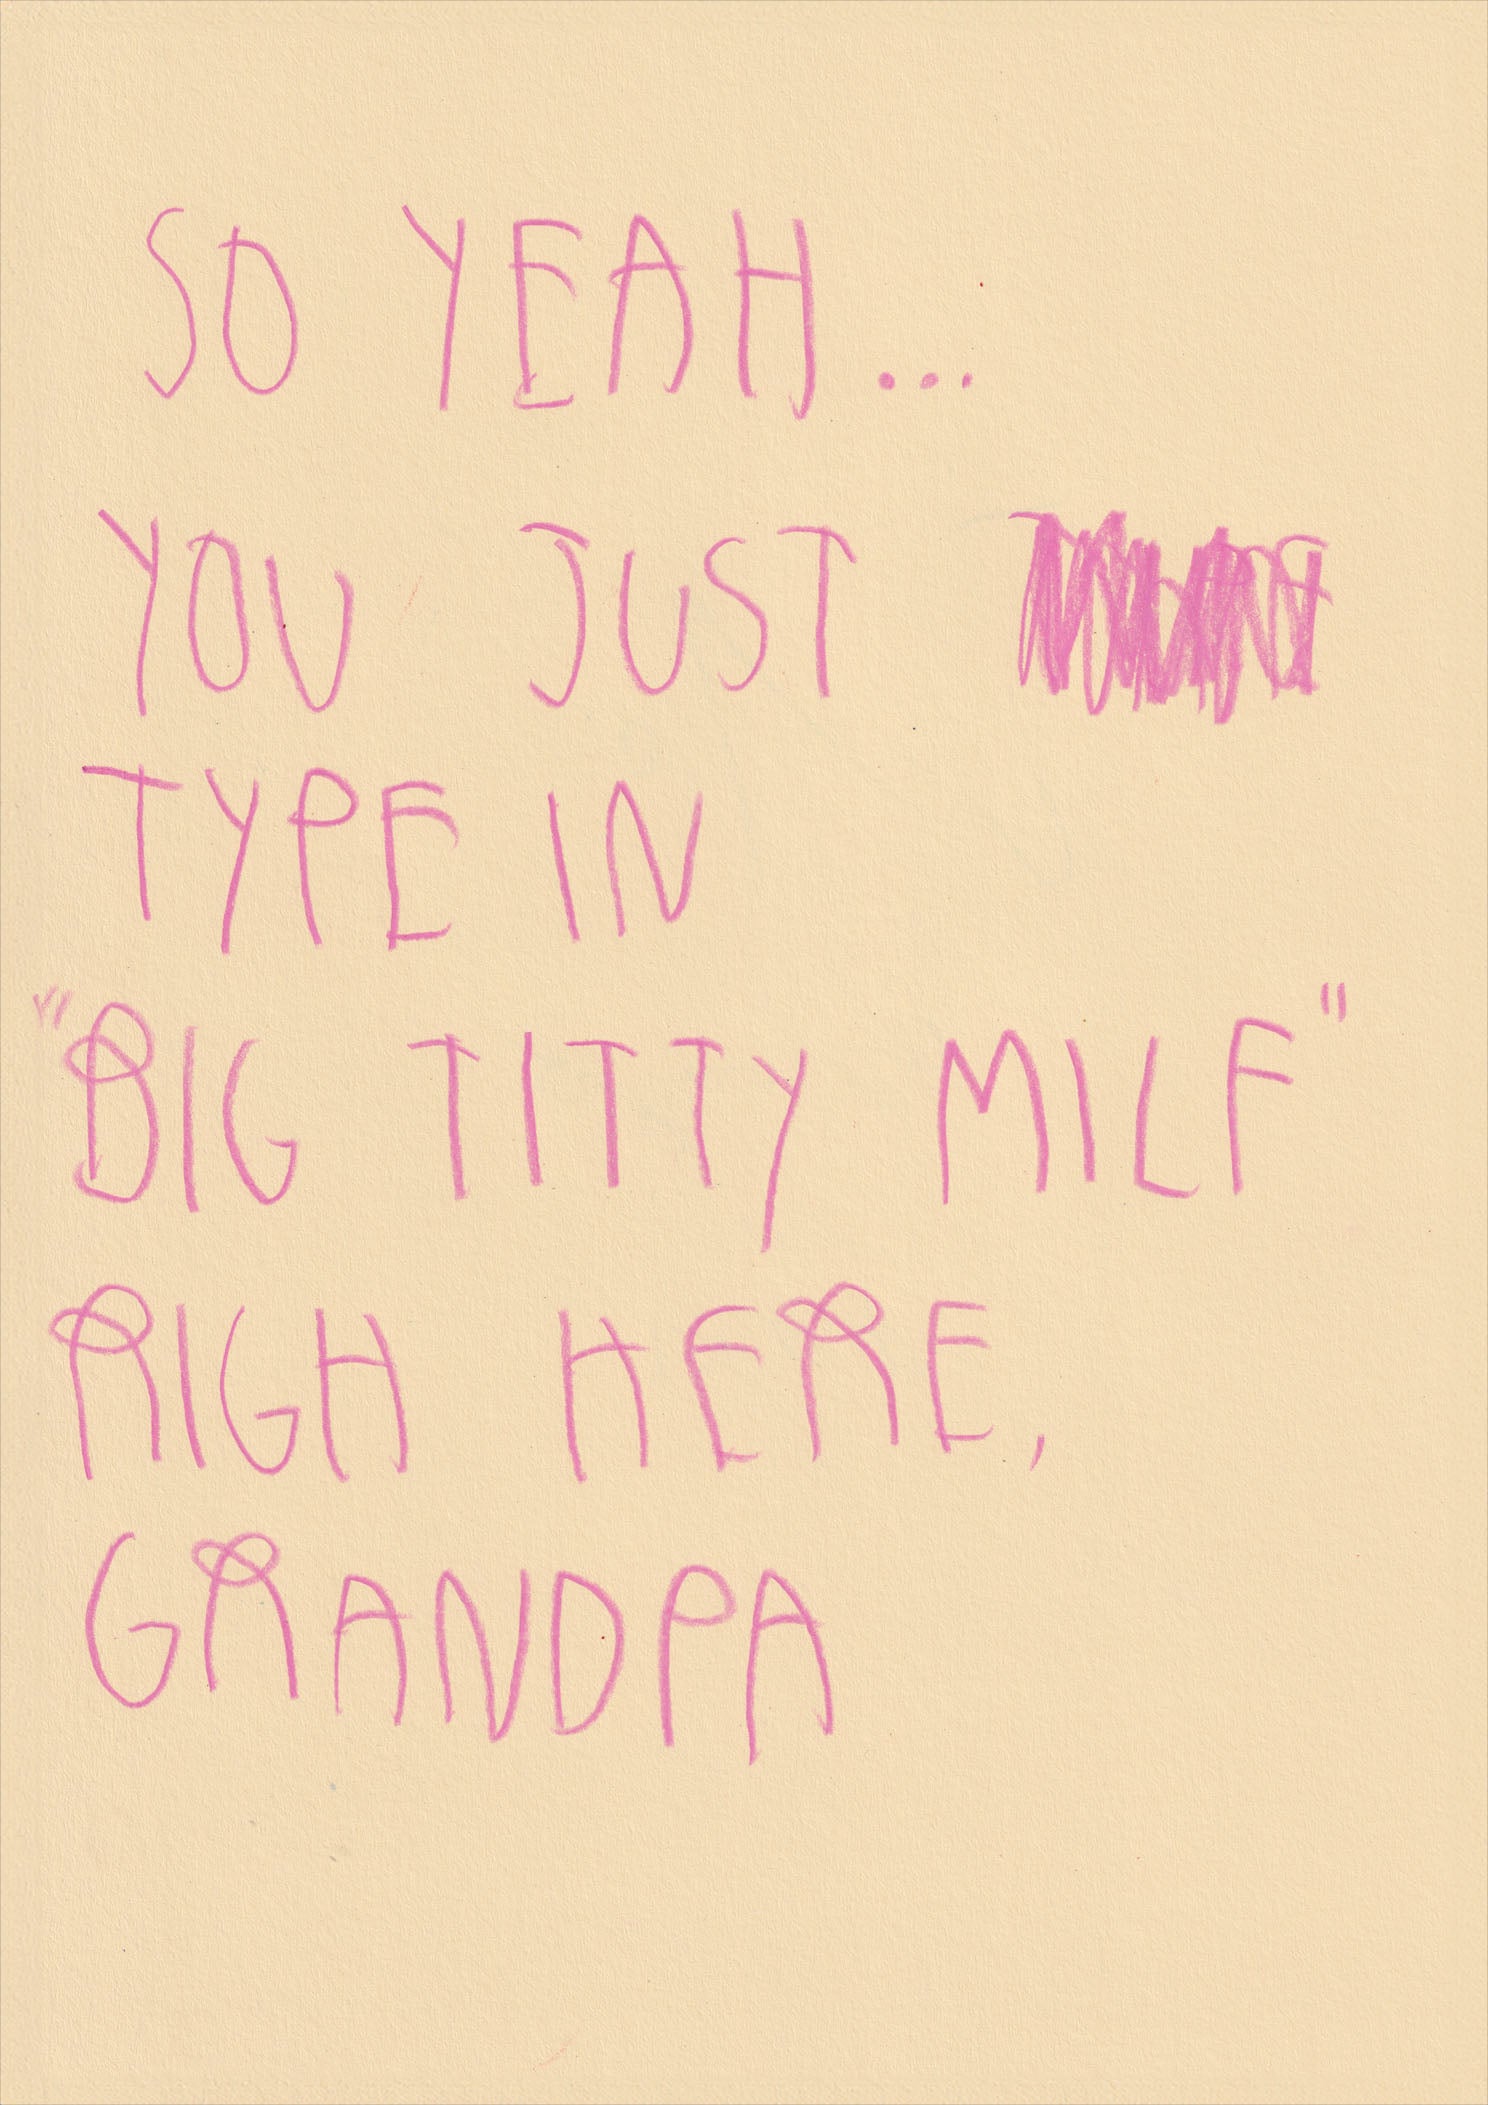 SO YEAH...
YOU JUST
TYPE IN
"BIG TITTY MILF"
RIGH HERE,
GRANDPA